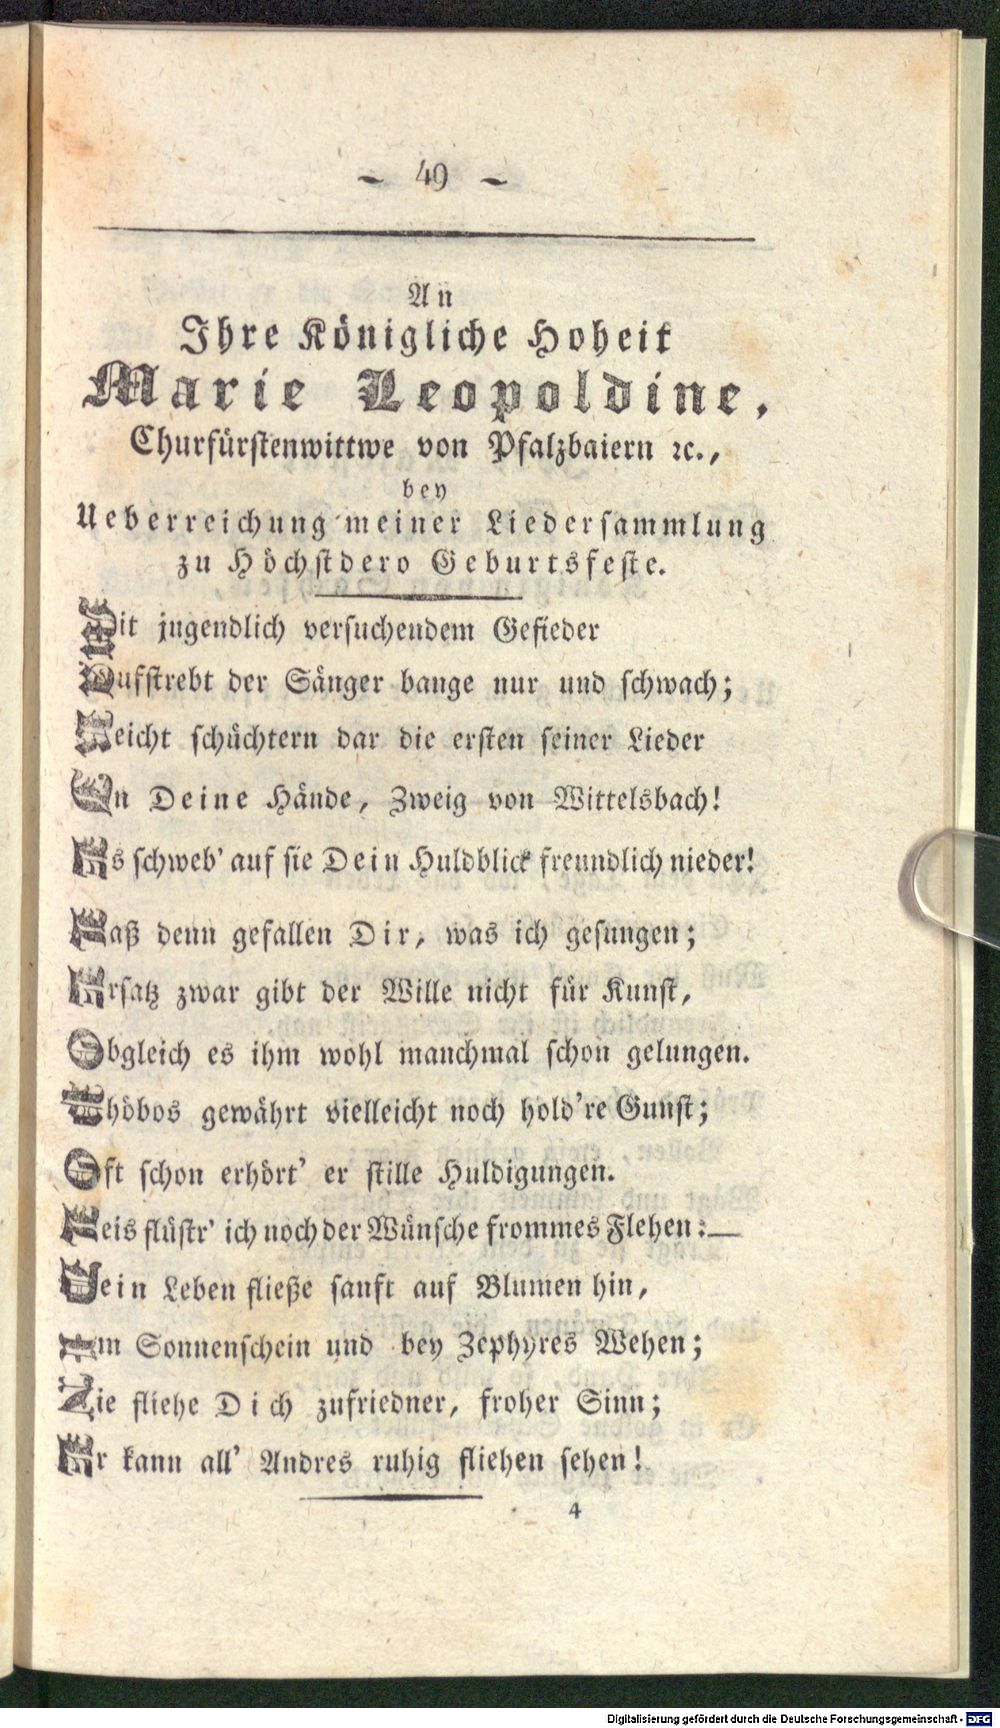 – 49 –
An
Ihre Königliche Hoheit
Marie Leopoldine,
Churfürstenwittwe von Pfalzbaiern ꝛc.,
bey
Ueberreichung meiner Liedersammlung
zu Höchstdero Geburtsfeste.
Mit jugendlich versuchendem Gefieder
Aufstrebt der Sänger bange nur und schwach;
Reicht schüchtern dar die ersten seiner Lieder
In Deine Hände, Zweig von Wittelsbach!
Es schweb' auf sie Dein Huldblick freundlich nieder!
Laß denn gefallen Dir, was ich gesungen;
Ersatz zwar gibt der Wille nicht für Kunst,
Obgleich es ihm wohl manchmal schon gelungen.
Phöbos gewährt vielleicht noch hold're Gunst;
Oft schon erhört' er stille Huldigungen.
Leis flüstr' ich noch der Wünsche frommes Flehen:—
Dein Leben fließe sanft auf Blumen hin,
Im Sonnenschein und bey Zephyres Wehen;
Nie fliehe Dich zufriedner, froher Sinn;
Er kann all' Andres ruhig fliehen sehen!
4
Digitalisierung gefördert durch die Deutsche Forschungsgemeinschaft - DFG